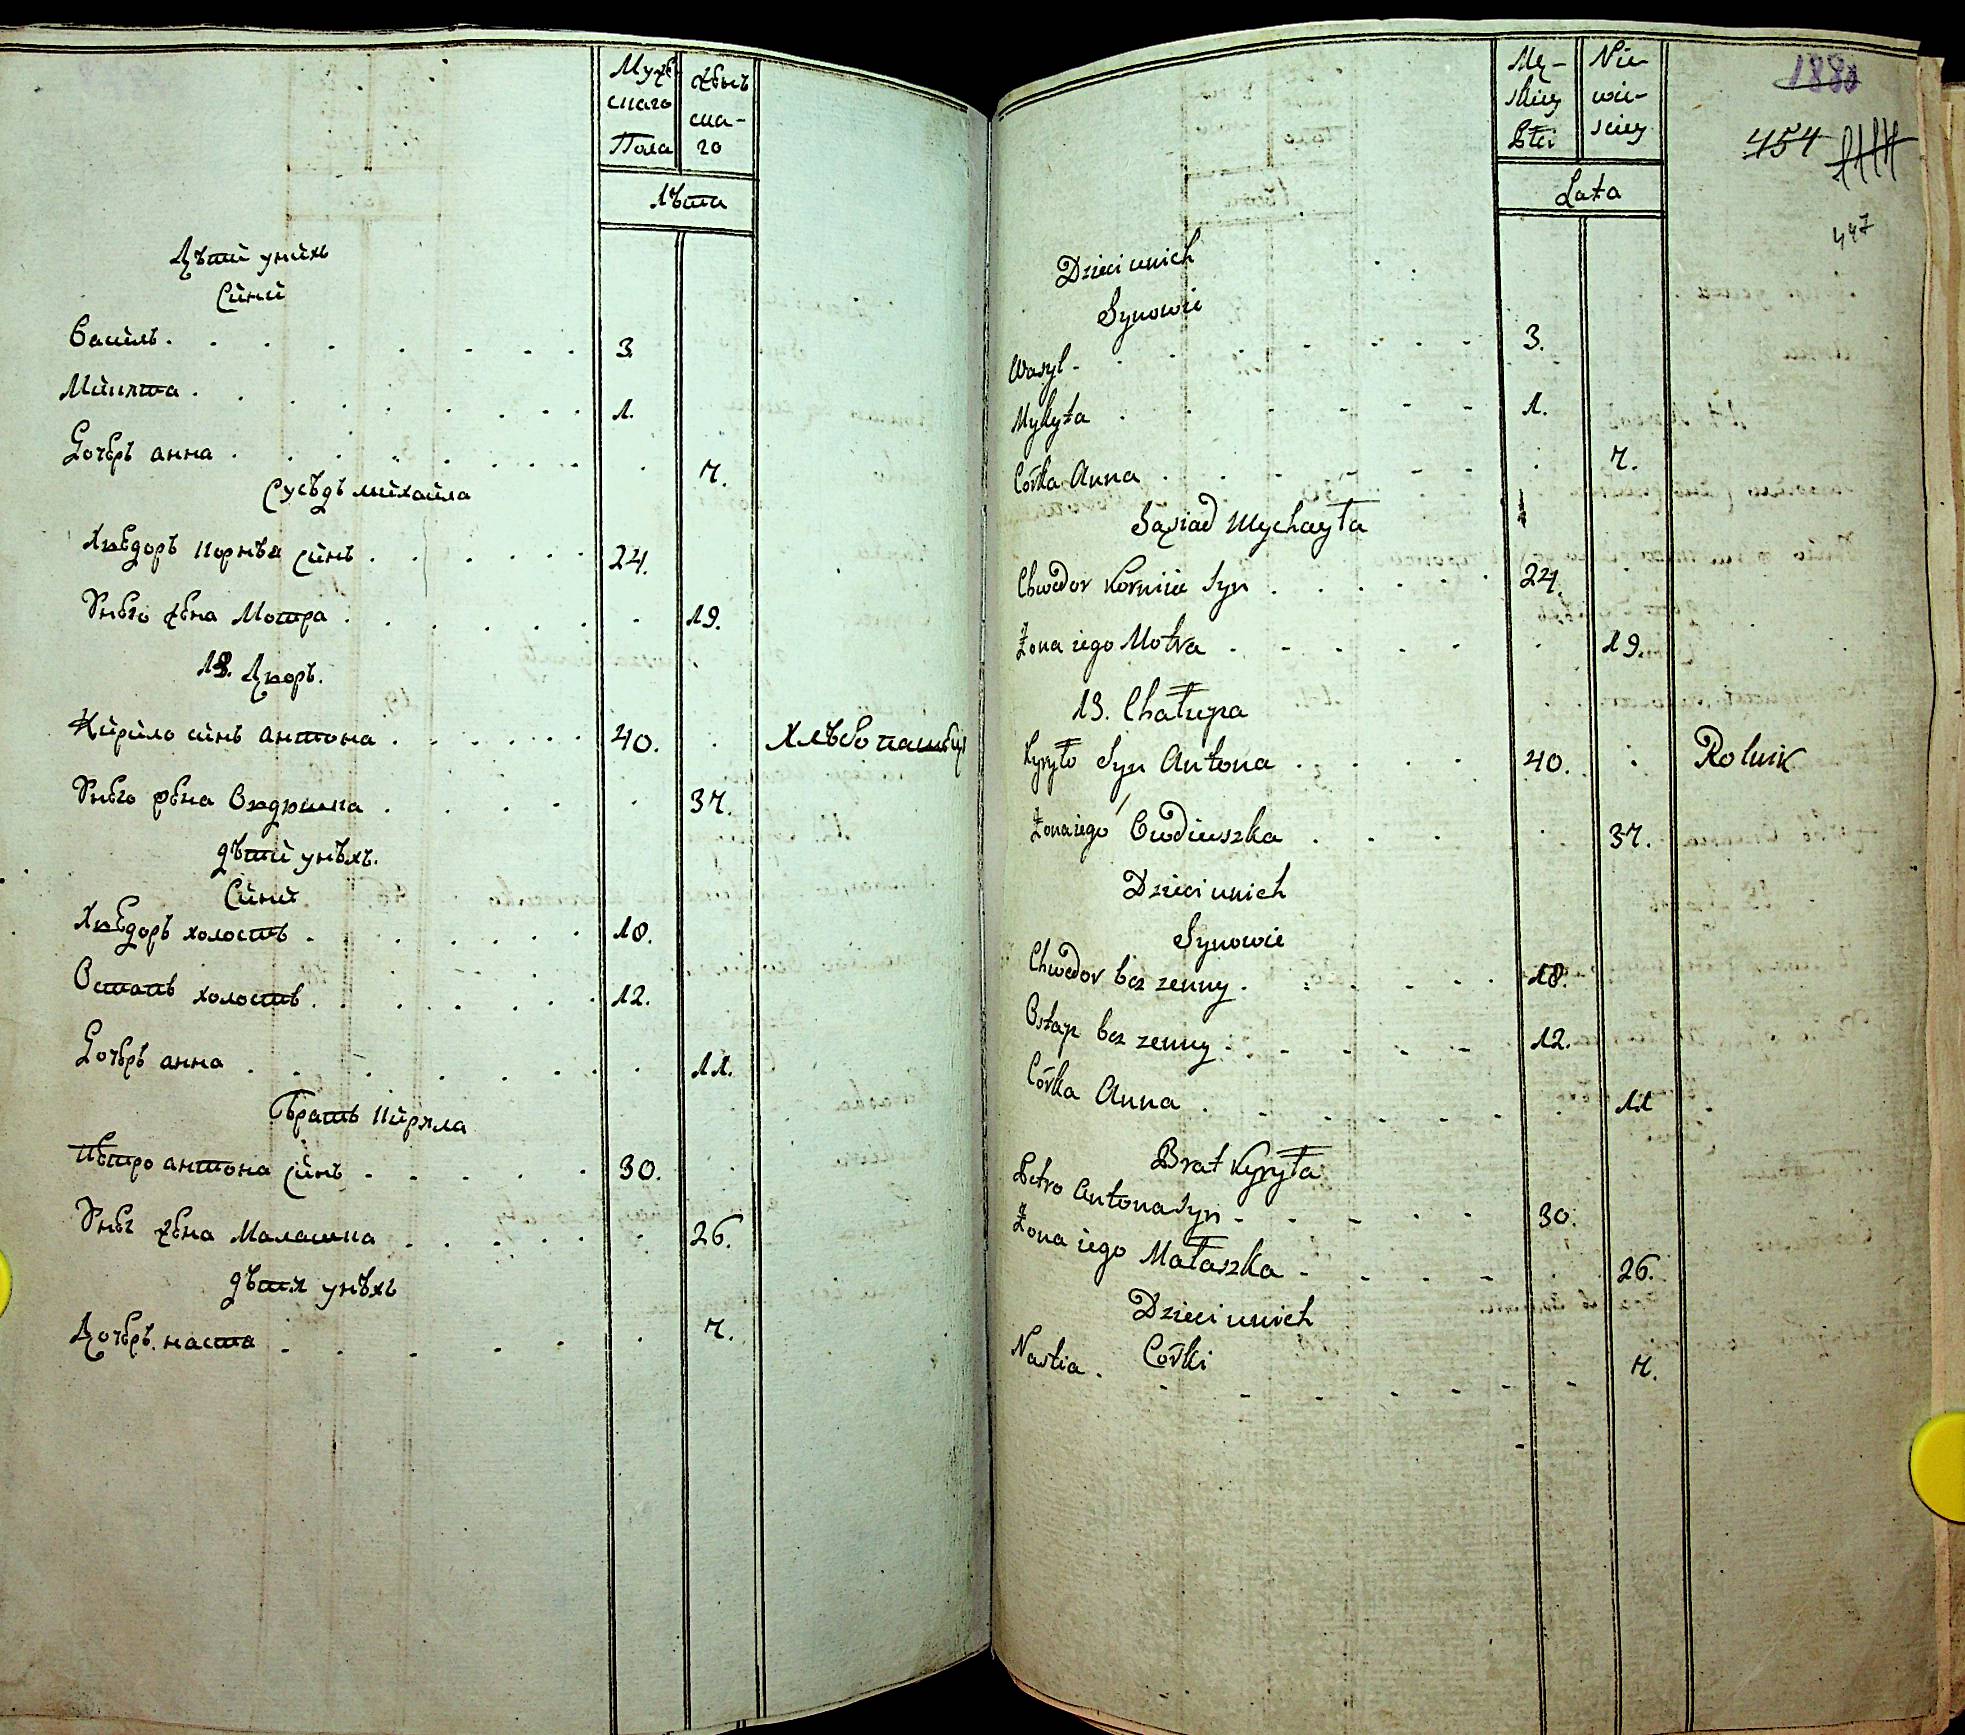 Мужескаго Пола
Женскаго
Лѣта
Дѣтй унйхъ
Сйнй
Васйль . 3.
Мйкита . 1.
Дочерь анна . 7.
Сусѣдъ мйхайла
Хведоръ Корнѣя Сйнъ . 24.
Унего жена Мотра . 19.
13. Дворъ.
Кйрйло сйнъ антона . 40. Хлѣбопашецъ
Унего жена Овдюшка . 37.
дѣтй унѣхъ.
Сйнй
Хведоръ холостъ . 18.
Остапъ холостъ . 12.
Дочерь анна . 11.
Братъ Кйрила
Петро антона Сйнъ . 30.
Унег жена Малашка . 26.
дѣти унѣхъ
Дочерь наста . 7.
Męskiey Płci
Niewieściey
Lata
1880
454
447
Dzieci unich
Synowie
Wasyl - 3.
Mykyta . 1.
Córka Anna . 7.
Sąsiad Mychayła
Chwedor Kornija Syn . 24.
Żona iego Motra . 19.
13. Chałupa
Kyryło Syn Antona . 40. Rolnik
Żona iego Owdiuszka . 37.
Dzieci unich
Synowie
Chwedor bez zenny . 18.
Ostap bez zenny . 12.
Córka Anna . 11
Brat Kyryła
Petro Antona Syn - 30.
Żona iego Małaszka - 26.
Dzieci unich
Córki
Nastia . 7.